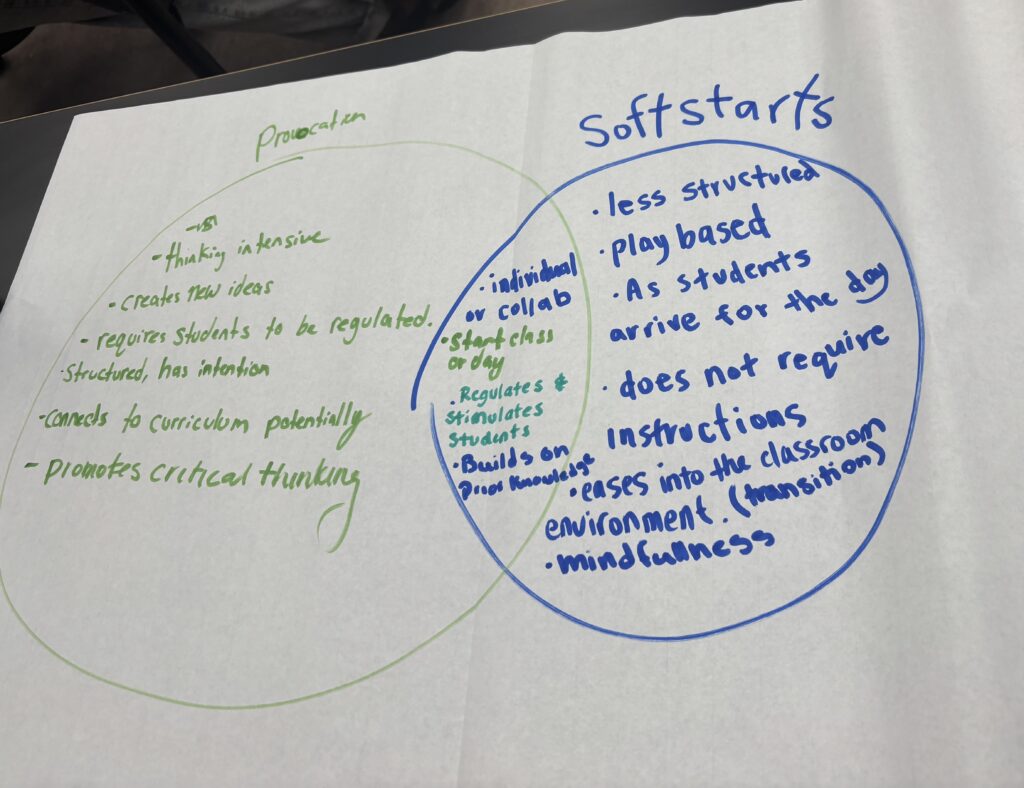 Provocation
- thinking intensive
- creates new ideas
- requires students to be regulated.
· Structured, has intention
- connects to curriculum potentially
- promotes critical thinking
· individual
or collab
· Start class
or day
· Regulates &
Stimulates
Students
· Builds on
Prior Knowledge
Soft starts
· less structured
· play based
· As students
arrive for the day
· does not require
instructions
· eases into the classroom
environment. (transition)
· mindfullness